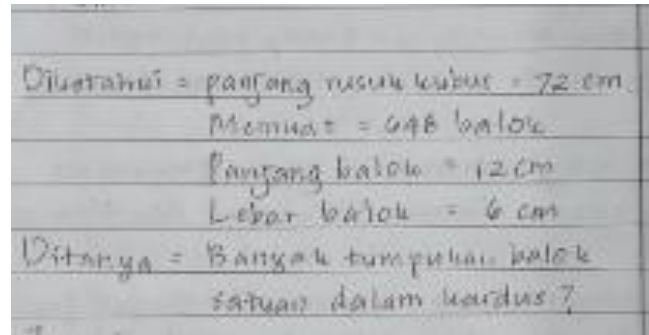 Diketahui = panjang rusuk kubus = 72 cm
Memuat = 648 balok
Panjang balok = 12 cm
Lebar balok = 6 cm
Ditanya = Banyak tumpukan balok
satuan dalam kardus?